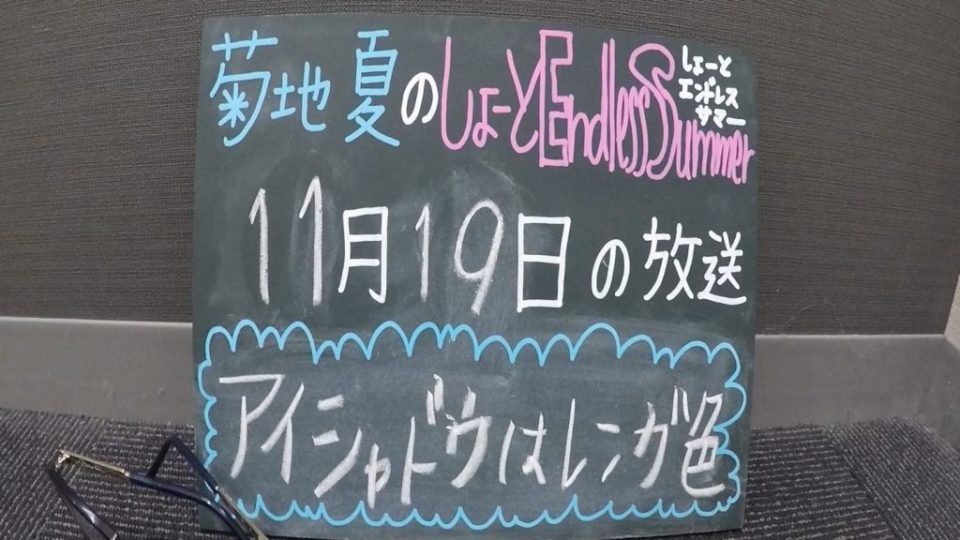 菊地夏のしょーとEndlessSummer
しょーと
エンドレス
サマー
11月19日の放送
アイシャドウはレンガ色